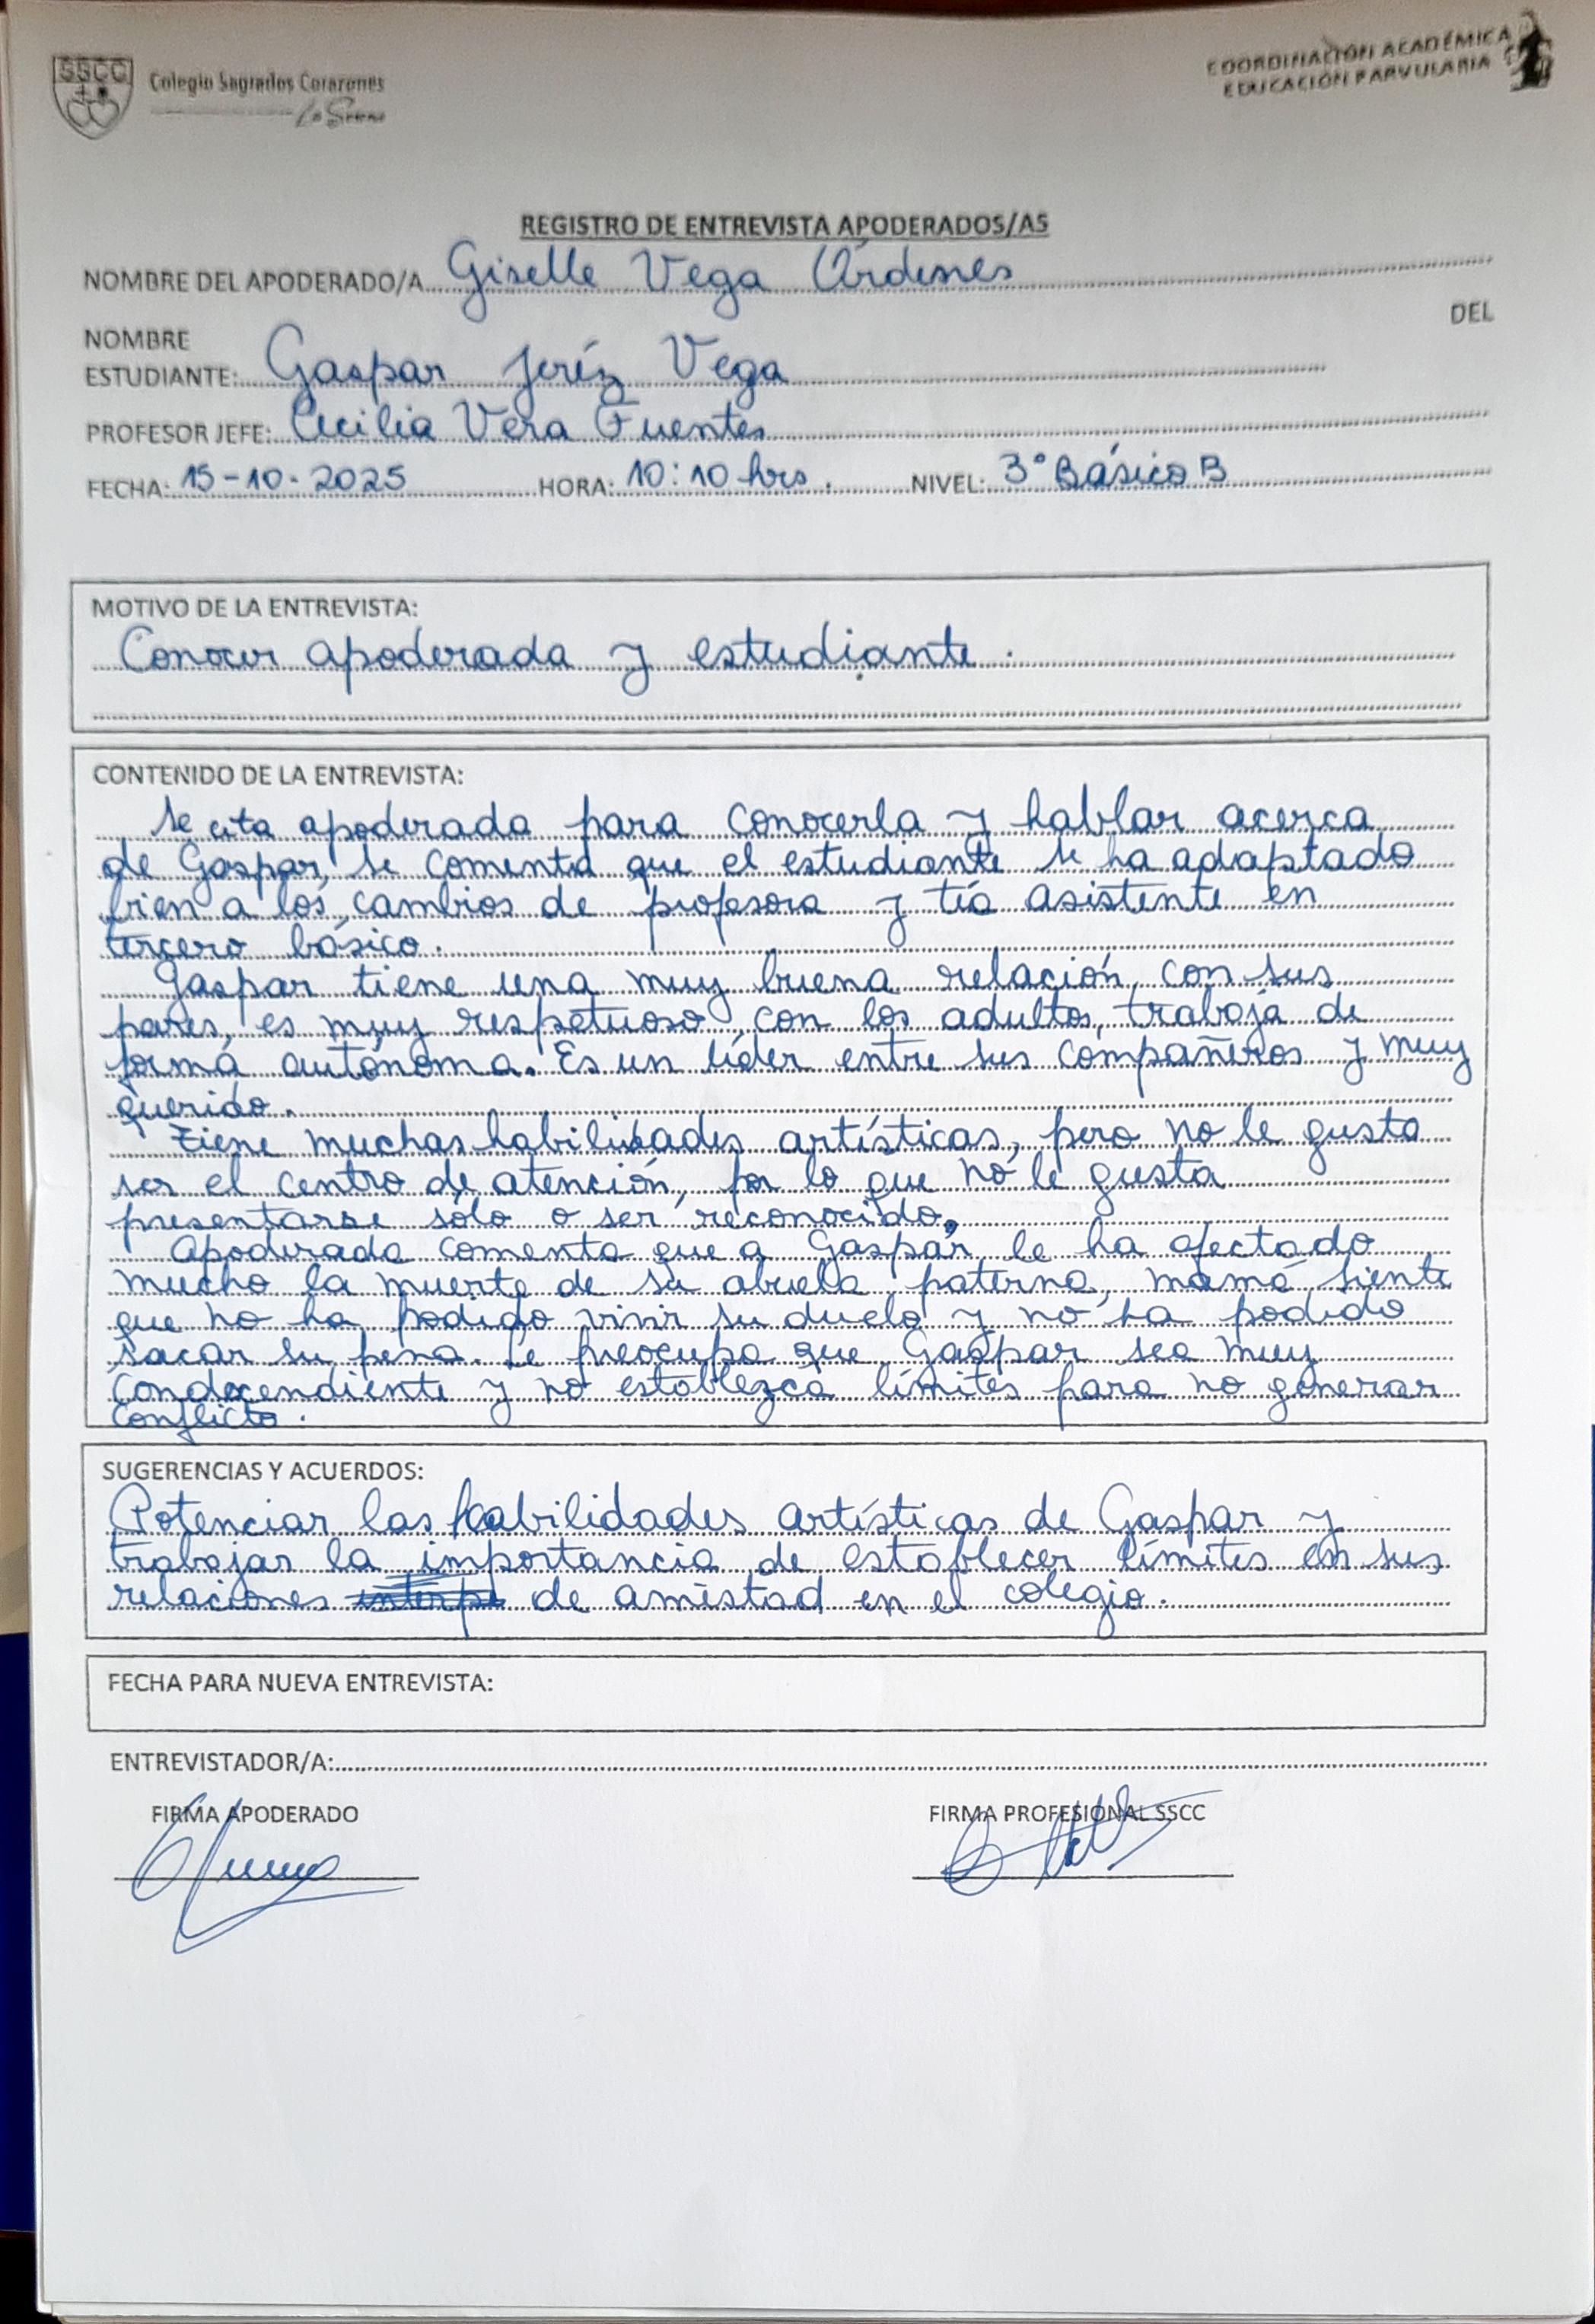 SSCC Colegio Sagrados Corazones
La Serena
COORDINACIÓN ACADÉMICA
EDUCACIÓN PARVULARIA
REGISTRO DE ENTREVISTA APODERADOS/AS
NOMBRE DEL APODERADO/A Giselle Vega Árdenes
DEL
NOMBRE
ESTUDIANTE: Gaspar Jeréz Vega
PROFESOR JEFE: Cecilia Vera Fuentes
FECHA: 15-10-2025 HORA: 10:10 hrs. NIVEL: 3° Básico B
MOTIVO DE LA ENTREVISTA:
Conocer apoderada y estudiante.
CONTENIDO DE LA ENTREVISTA:
Se cita apoderada para conocerla y hablar acerca
de Gaspar, se comenta que el estudiante se ha adaptado
bien a los cambios de profesora y tía asistente en
tercero básico.
Gaspar tiene una muy buena relación con sus
pares, es muy respetuoso con los adultos, trabaja de
forma autónoma. Es un líder entre sus compañeros y muy
querido.
Tiene muchas habilidades artísticas, pero no le gusta
ser el centro de atención, por lo que no le gusta
presentarse solo o ser reconocido.
Apoderada comenta que a Gaspar le ha afectado
mucho la muerte de su abuela paterna, mamá siente
que no ha podido vivir su duelo y no ha podido
sacar su pena. Le preocupa que Gaspar sea muy
condecendiente y no establezca límites para no generar
conflicto.
SUGERENCIAS Y ACUERDOS:
Potenciar las habilidades artísticas de Gaspar y
trabajar la importancia de establecer límites en sus
relaciones de amistad en el colegio.
FECHA PARA NUEVA ENTREVISTA:
ENTREVISTADOR/A:
FIRMA APODERADO FIRMA PROFESIONAL SSCC